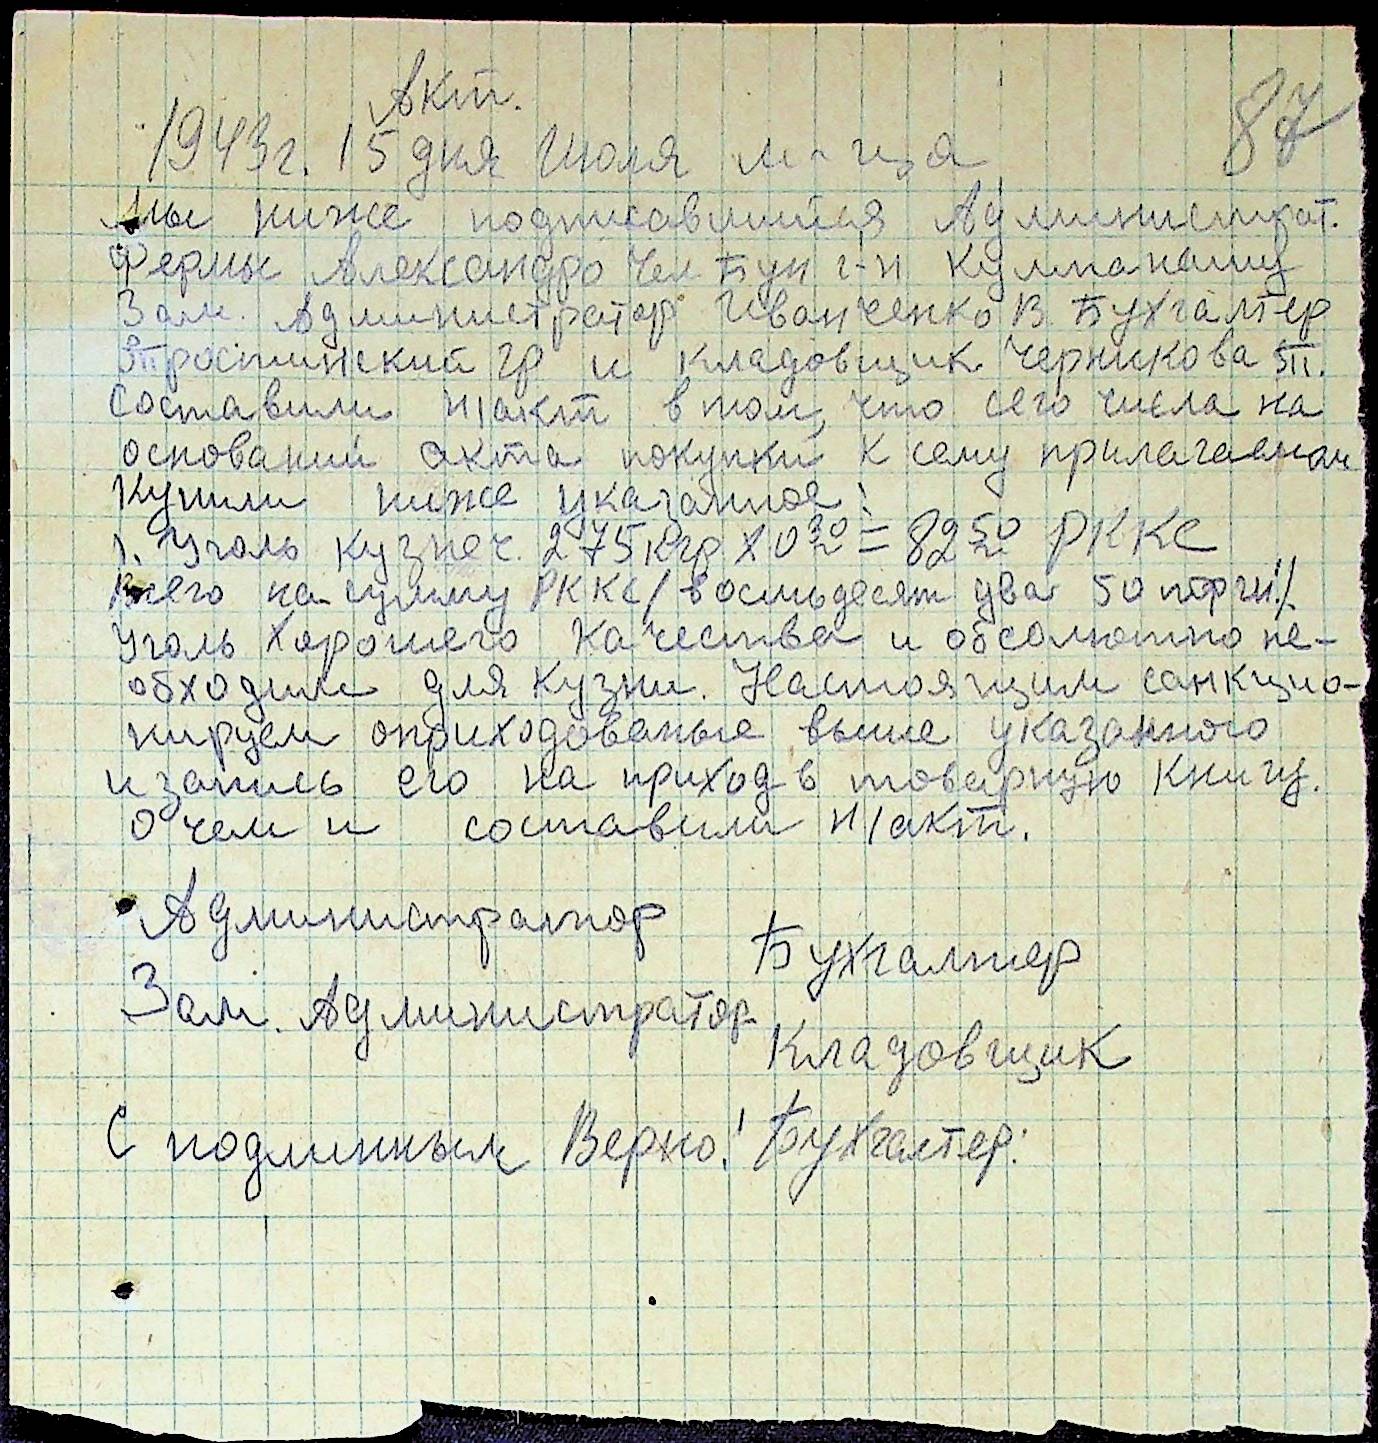 Акт.
87
1943г. 15 дня Июля м-ца
Мы ниже подписавшийся Администрат.
Фермы Александро Чел Бун г-н
Зам. Администратор Иванченко В. Бухгалтер
гр и кладовщик Черникова
Составили н/акт в том, что сего числа на
основании акта покупки к сему прилагаемом
Купили ниже указанное:
1. Уголь кузнеч. 275 кгр х 0 30 = 82 50 РККС
Всего на сумму РККС / восмьдесят два 50 пфгн./.
Уголь хорошего качества и обсолютно не-
обходим для кузни. Настоящим санкцио-
нируем оприходованые выше указанного
и запись его на приход в товарную книгу.
О чем и составили н/акт.
Администратор
Бухгалтер
Зам. Администратор
Кладовщик
С подлинным Верно! Бухгалтер: